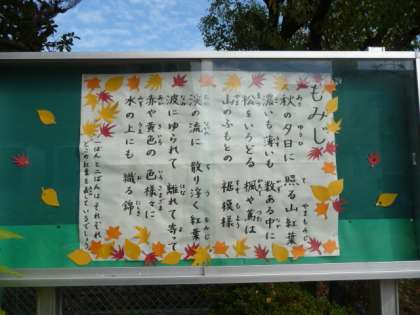 もみじ
秋の夕日に 照る山紅葉
濃いも薄いも 数ある中に
松をいろどる 楓や蔦は
山のふもとの 裾模様
渓の流に 散り浮く紅葉
波にゆられて 離れて寄って
赤や黄色の 色様々に
水の上にも 織る錦